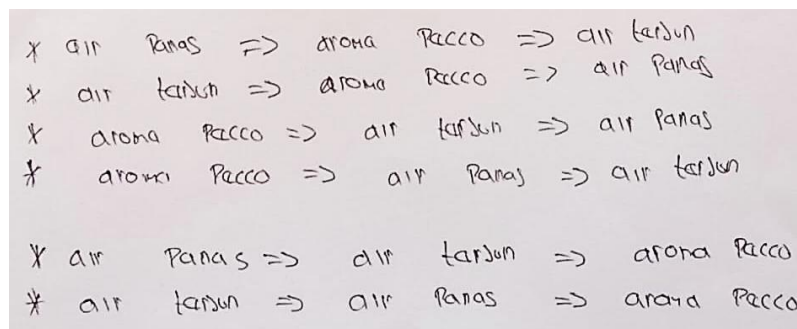 * air Panas => aroma Pacco => air tarjun
* air tarjun => aroma Pacco => air Panas
* aroma Pacco => air tarjun => air Panas
* aroma Pacco => air Panas => air tarjun
* air Panas => air tarjun => aroma Pacco
* air tarjun => air Panas => aroma Pacco